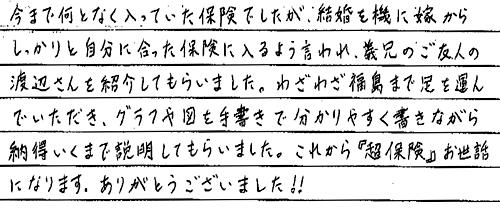 今まで何となく入っていた保険でしたが、結婚を機に嫁から
しっかりと自分に合った保険に入るよう言われ、義兄のご友人の
渡辺さんを紹介してもらいました。わざわざ福島まで足を運ん
でいただき、グラフや図を手書きで分かりやすく書きながら
納得いくまで説明してもらいました。これから『超保険』お世話
になります。ありがとうございました!!